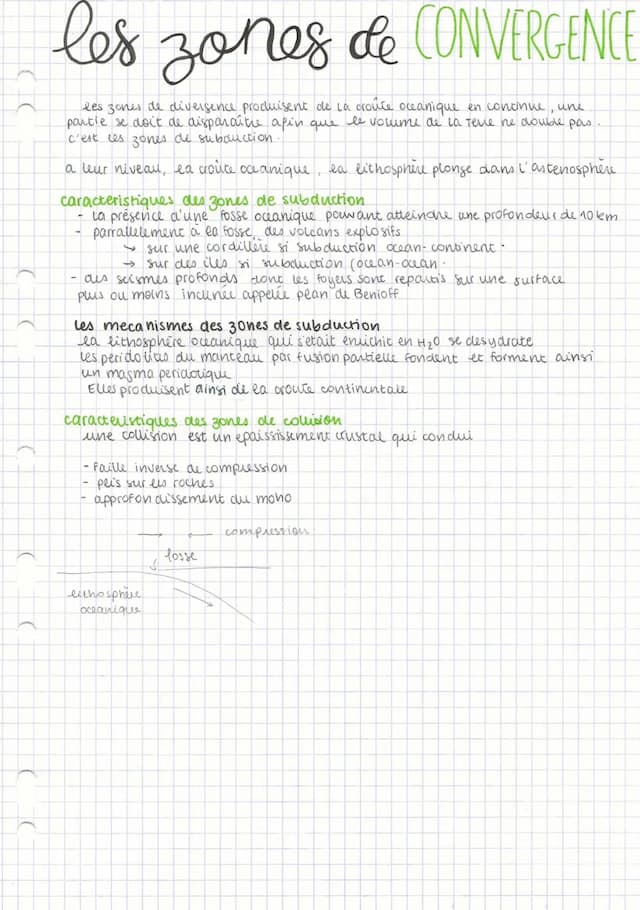 les zones de CONVERGENCE
les zones de divergence produisent de la croûte oceanique en continue, une
partie se doit de disparaître afin que le volume de la terre ne double pas.
c'est les zones de subduction.
a leur niveau, la croûte oceanique, la lithosphère plonge dans l'astenosphère
caracteristiques des zones de subduction
- la présence d'une fosse oceanique pouvant atteindre une profondeur de 10 km
- parrallelement à la fosse, des volcans explosifs
→ sur une cordillère si subduction ocean-continent.
→ sur des îles si subduction (ocean-ocean.
- des seismes profonds dont les foyers sont repartis sur une surface
plus ou moins inclinée appelée plan de Benioff
les mecanismes des zones de subduction
la lithosphère oceanique qui s'etait enrichie en H₂O se desydrate
les peridotites du manteau par fusion partielle fondent et forment ainsi
un magma peridotique
Elles produisent ainsi de la croute continentale
caracteristiques des zones de collision
une collision est un epaississement crustal qui condui
- faille inverse de compression
- plis sur les roches
- approfondissement du moho
→ ← compression
fosse
lithosphère
oceanique